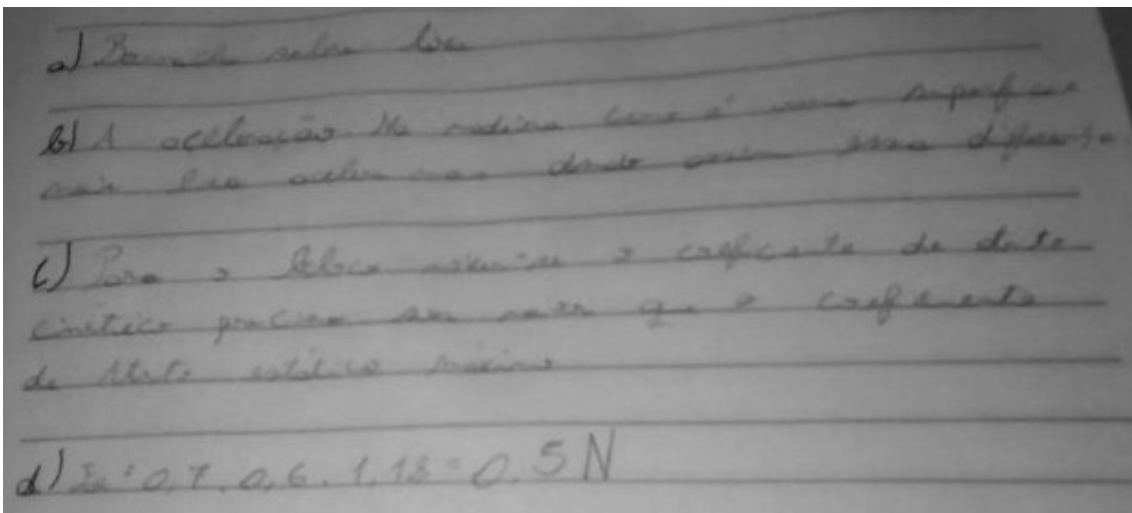 a) Borracha sobre lixa
b) A aceleração. Na madeira como é uma superfície
mais lisa acelera mais dando assim essa diferente
c) Para o bloco mover-se o coeficiente de atrito
cinético precisa ser maior que o coeficiente
de atrito estático máximo
d) = 0,7 . 0,6 . 1,18 = 0,5 N